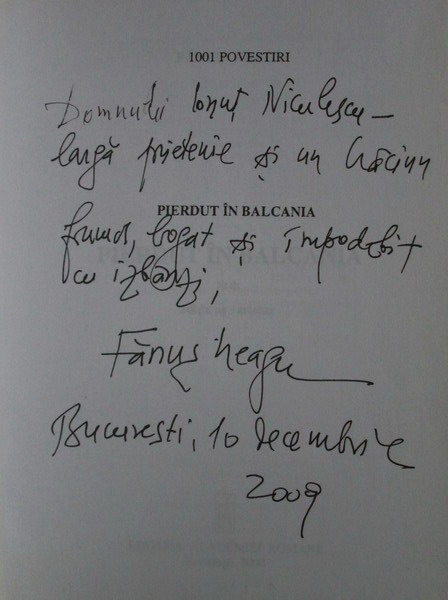 1001 POVESTIRI
Domnului Ionuț Niculescu –
largă prietenie și un Crăciun
PIERDUT ÎN BALCANIA
frumos, bogat și împodobit
cu izbânzi,
Fănuș Neagu
București, 10 decembrie
2009